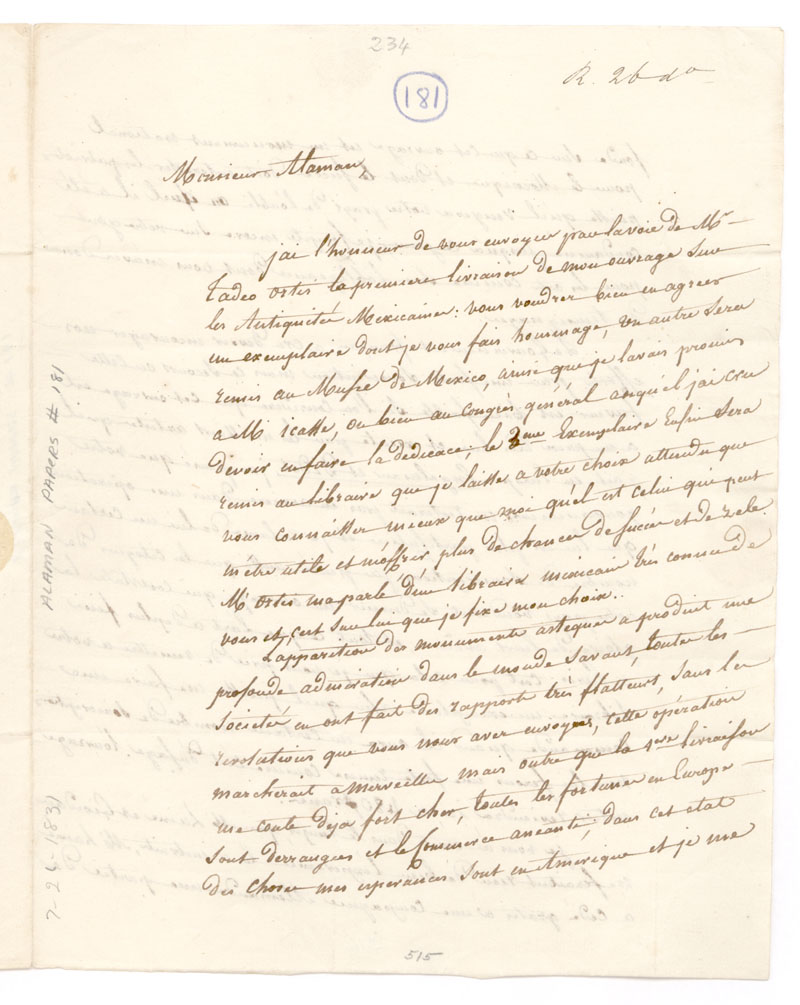 234
181
R. 26 do
Monsieur Alaman,
jai l'honneur de vous envoyer par la voie de Mr
Tadeo ortis la premiere livraison de mon ouvrage sur
les Antiquités Mexicaines: vous voudrez bien en agreer
un exemplaire dont je vous fais homenage, un autre sera
remis au Musée de Mexico, ainsi que je lavais promis
a Mr icasse, ou bien au Congrès général auquel jai cru
devoir en faire la dédicace; le 3eme Exemplaire Enfin sera
remis au libraire que je laisse a votre choix attendu que
vous connaissez mieux que moi quel est celui qui peut
m'étre utile et m'offrir plus de chances de succès et de zele.
Mr ortis ma parlé d'un libraire mexicain très connu de
vous et c'est sur lui que je fixe mon choix.
L'apparition des monuments asteques a produit une
profonde admiration dans le monde savant, toutes les
Societés en ont fait des rapports très flatteurs, sans les
revolutions que vous nous avez envoyées, cette opération
marcherait a merveille mais outre que la 1ere livraison
me coute deja fort cher, toutes les fortunes en Europe
sont derrangées et le Commerce aneanti; dans cet etat
des choses mes esperances sont en Amérique et je me
515
ALAMAN PAPERS # 181
7-24-1831